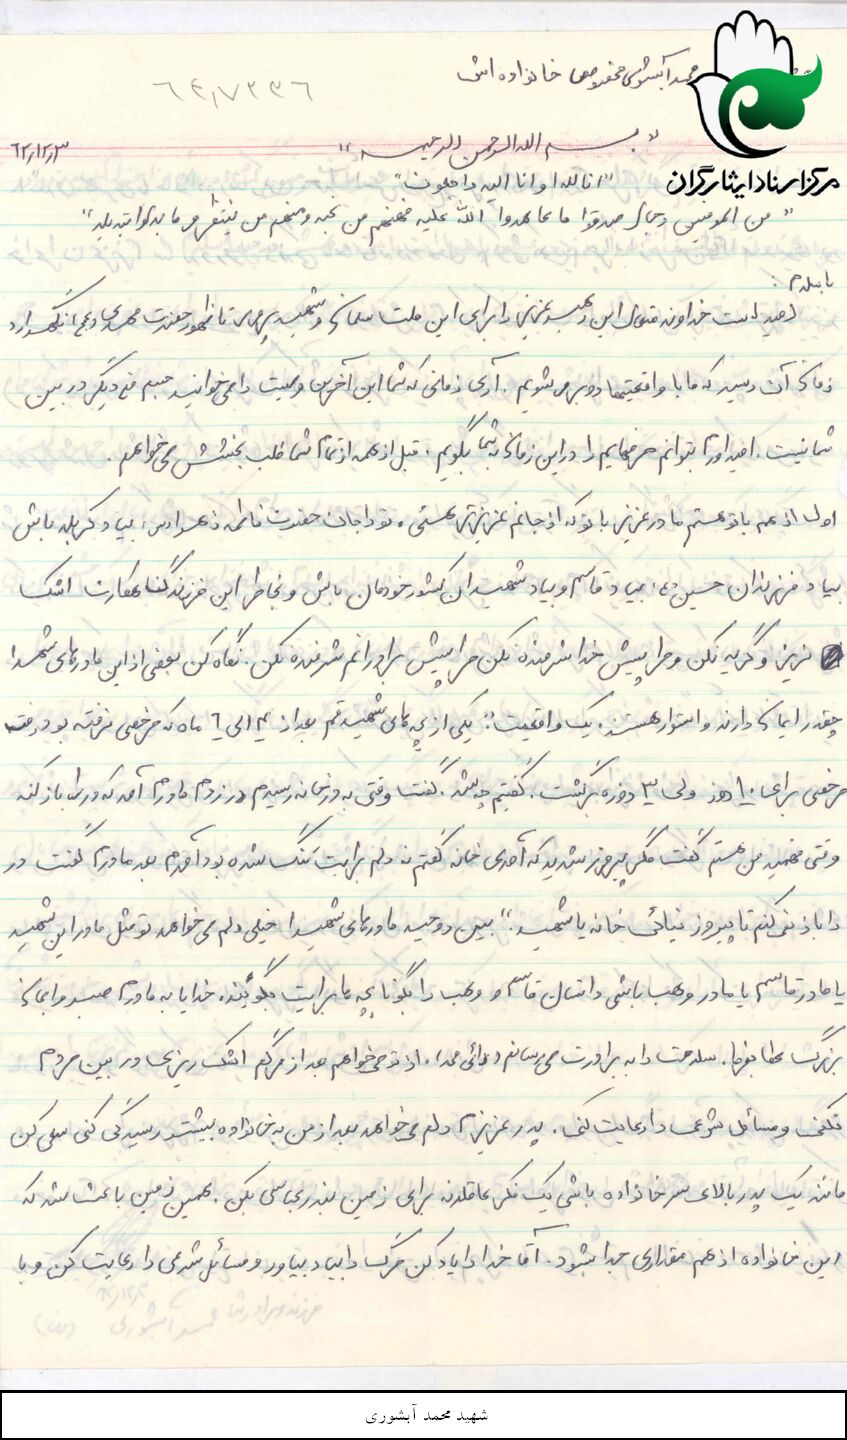 محمد آبشوری مخصوص خانواده اش
۶۴٫۷۳۳۶
مرکز اسناد ایثارگران
"بسم الله الرحمن الرحیم"
۶۲٫۱۲٫۳
"انا لله و انا الیه راجعون"
"من المومنین رجال صدقوا ما عاهدوا الله علیه فمنهم من نحبه و منهم من ینتظر و ما بدلوا تبدیلا"
با سلام :
امید است خداوند متعال این رهبر عزیز را برای این ملت مسلمان و شهید پرور تا ظهور حضرت مهدی (عج) نگهدارد
زمان آن رسید که ما با واقعیتها روبرو می شویم . آری زمانی که شما این آخرین وصیت را می خوانید جسم من دیگر در بین
شما نیست . امیدوارم بتوانم حرفهایم را در این زمان به شما بگویم . قبل از همه از تمام شما طلب بخشش می خواهم .
اول از هم با تو هستم مادر عزیز با تو که از جانم عزیزتر هستی ، تو را جان حضرت فاطمه زهرا (س) بیاد کربلا باش
بیاد فرزندان حسین (ع) بیاد قاسم و بیاد شهیدان کشور خودمان باش و بخاطر این فرزند گناهکارت اشک
نریز و گریه نکن و مرا پیش خدا شرمنده نکن مرا پیش برادرانم شرمنده نکن . نگاه کن بعضی از این مادرهای شهدا
چقدر ایمان دارند و استوار هستند . یک واقعیت : "یکی از بچه های شهید قم بعد از ۴ الی ۶ ماه که مرخصی نرفته بود رفت
مرخصی برای ۱۰ روز ولی ۳ روزه برگشت . گفتیم چه شد . گفت وقتی به در خانه رسیدم در زدم مادرم آمد که در را باز کند
وقتی فهمید من هستم گفت مگر پیروز شدید که آمدی خانه گفتم نه دلم برایت تنگ شده بود آمدم بعد مادرم گفت در
را باز نمی کنم تا پیروز نیائی خانه یا شهید ." ببین روحیه مادرهای شهید را خیلی دلم می خواهد تو مثل مادر این شهید
یا مادر قاسم یا مادر وهب باشی داستان قاسم و وهب را بگو تا بچه ها برایت بگویند، خدایا به مادرم صبر و ایمان
بزرگ عطا بفرما . سلامت را به برادرت می رسانم (دائی ) . از تو می خواهم بعد از مرگم اشک ریزی در بین مردم
نکنی و مسائل شرعی را رعایت کنی . پدر عزیزم دلم می خواهد بعد از من به خانواده بیشتر رسیدگی کنی سعی کن
مانند یک پدر بالای سر خانواده باشی یک فکر عاقلانه برای زمین بکن . همین زمین باعث شد که
این خانواده از هم مقداری جدا بشود . آقا خدا را یاد کن مرگ را بیاد بیاور و مسائل شرعی را رعایت کن و با
فرزند و برادر شما
محمد آبشوری
شهید محمد آبشوری